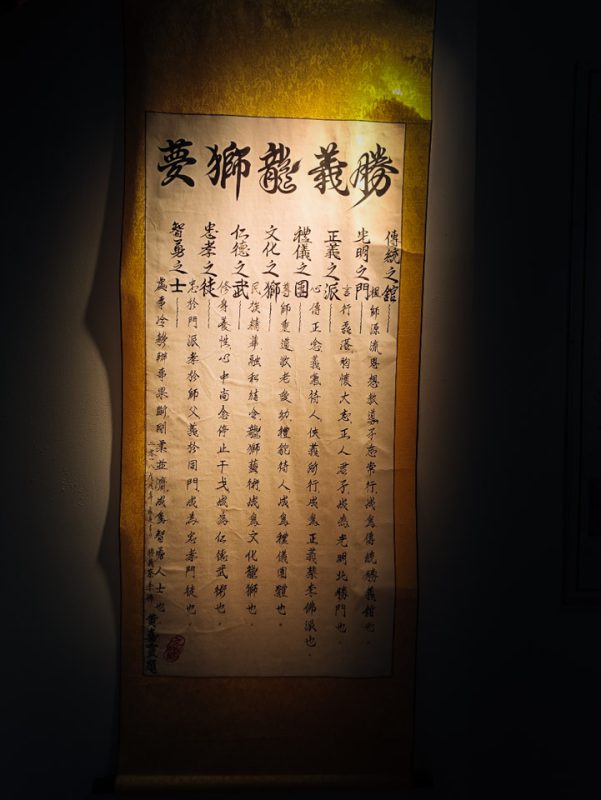 勝義龍獅夢
傳統之館——祖師源流思想教導不忘常行成為傳統勝義館也。
光明之門——言行磊落胸懷大志正人君子成為光明北勝門也。
正義之派——心正念義待人俠義所行成為正義蔡李佛派也。
禮儀之團——尊師重道敬老愛幼禮貌待人成為禮儀團體也。
文化之獅——民族精華融和結合龍獅藝術成為文化龍獅也。
仁德之武——修身養性心中尚念停止干戈成為仁德武術也。
忠孝之徒——忠於門派孝於師父義於同門成為忠孝門徒也。
智勇之士——處事冷靜辦事果斷剛柔並濟成為智勇人士也。
二零一八年